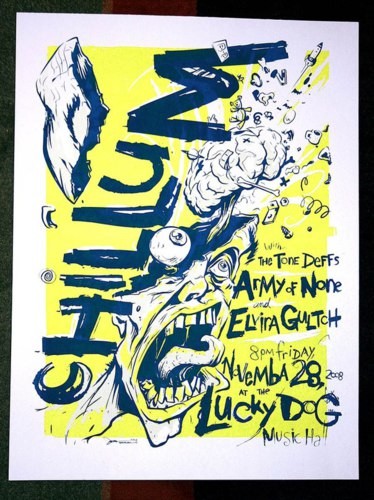 CHILLUM
with
THE TONE DEFFS
ARMY of NONE
and
ELVIRA GULTCH
8PM FRIDAY,
NOVEMBA 28, 2008
AT THE
LUCKY DOG
MUSIC Hall